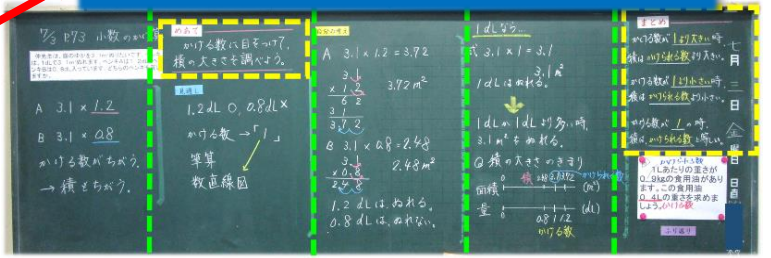 7/3 P.73 小数のかけ算
A 3.1 × 1.2
B 3.1 × 0.8
かける数がちがう。
→ 積もちがう。
めあて
かける数に目をつけて、
積の大きさを調べよう。
見通し
1.2dL 〇, 0.8dL×
かける数 →「1」
筆算
数直線図
A 3.1 × 1.2 = 3.72
3.1
× 1.2
6 2
3 1
3.7 2
3.72 m²
B 3.1 × 0.8 = 2.48
3.1
× 0.8
2.4 8
2.48 m²
1.2 dLは、ぬれる。
0.8 dLは、ぬれない。
1 dLなら…
式 3.1 × 1 = 3.1
3.1 m²
1 dLはぬれる。
1 dLが1 dLより多い時、
3.1 m²もぬれる。
積の大きさのきまり
積
かけられる数
面積
0
(m²)
量
0
0.8 1 1.2
(dL)
かける数
まとめ
かける数が1より大きい時、
積はかけられる数より大きい。
かける数が1より小さい時、
積はかけられる数より小さい。
かける数が1の時、
積はかけられる数と等しい。
かけられる数
1Lあたりの重さが
0.9kgの食用油があり
ます。この食用油
0.4Lの重さを求めま
しょう。かける数
ふり返り
七月三日金曜日